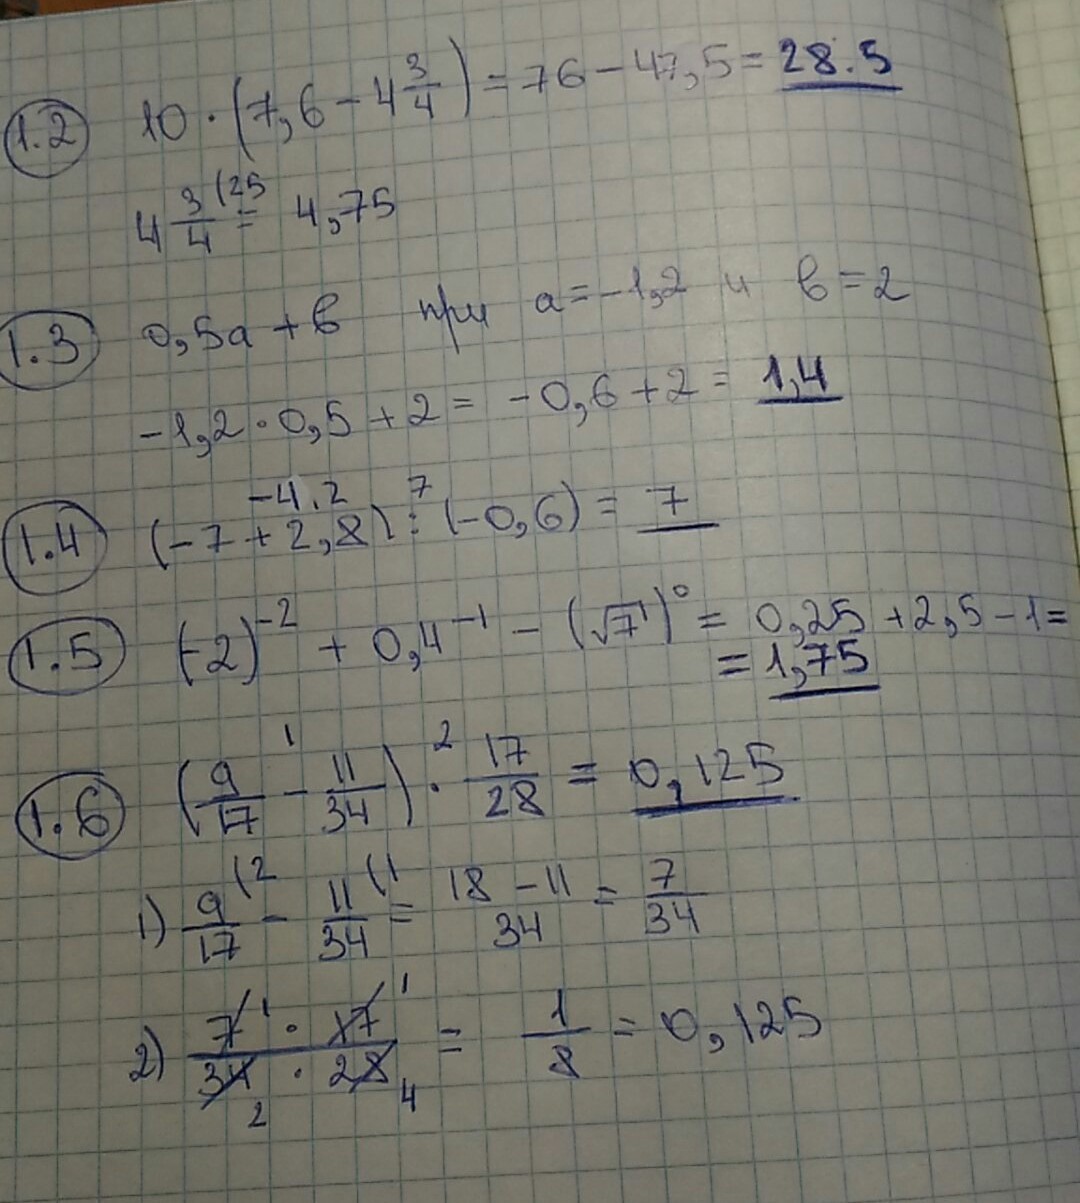 1.2 10 · (7,6 - 4 3/4) = 76 - 47,5 = 28.5
4 3/4 (25 = 4,75
1.3 0,5a + b при a = -1,2 и b = 2
-1,2 · 0,5 + 2 = -0,6 + 2 = 1,4
-4.2 7
1.4 (-7 + 2,8) : (-0,6) = 7
1.5 (-2)^-2 + 0,4^-1 - (√7)^0 = 0,25 + 2,5 - 1 =
= 1,75
1 2
1.6 (9/17 - 11/34) · 17/28 = 0,125
1) 9/17 (2 - 11/34 (1 = 18 - 11/34 = 7/34
2) 7 1 · 17 1 / 34 2 · 28 4 = 1/8 = 0,125